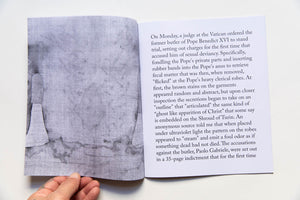 On Monday, a judge at the Vatican ordered the
former butler of Pope Benedict XVI to stand
trial, setting out charges for the first time that
accused him of sexual deviancy. Specifically,
fondling the Pope's private parts and inserting
rubber bands into the Pope's anus to retrieve
fecal matter that was then, when removed,
"flicked" at the heavy clerical robes. At
first, the brown stains on the garments
appeared random and abstract, but upon closer
inspection the secretions began to take on an
"outline" that "articulated" the same kind of
"ghost like apparition of Christ" that some say
is embedded on the Shroud of Turin. An
anonymous source told me that when placed
under ultraviolet light the pattern on the robes
appeared to "steam" and emit a foul odor as if
something dead had not died. The accusations
against the butler, Paolo Gabriele, were set out
in a 35-page indictment that for the first time